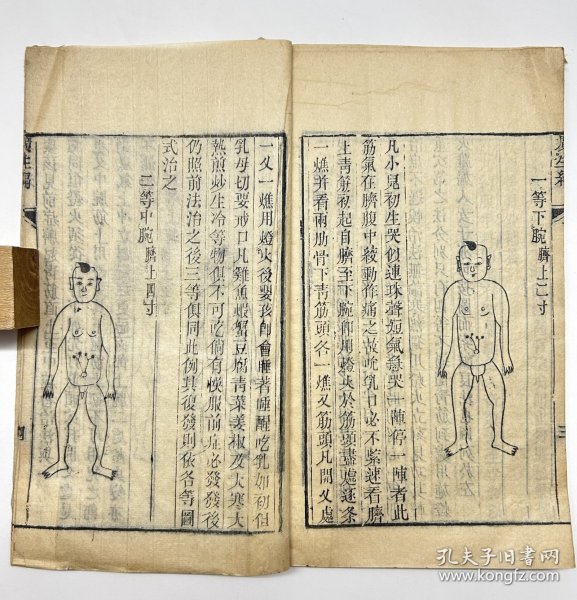 一等下脘臍上二寸
凡小兒初生哭似連珠聲短氣急哭一陣停一陣者此
筋氣在臍腹中絞動作痛之故吮乳口必不緊速看臍
上青筋初起自臍至下脘即用燈火於筋頭盡處逐條
一燋并看兩肋骨下青筋頭各一燋又筋頭凡開叉處
一叉一燋用燈火後嬰孩即會睡著睡醒吃乳如初但
乳母切要戒口凡雞魚蝦蟹豆腐青菜姜椒及大寒大
熱煎炒生冷等物俱不可吃倘有悞服前症必發發後
仍照前法治之後三等俱同此例其復發則依各等圖
式治之
二等中脘臍上四寸
生編
三
四
孔夫子旧书网
www.kongfz.com